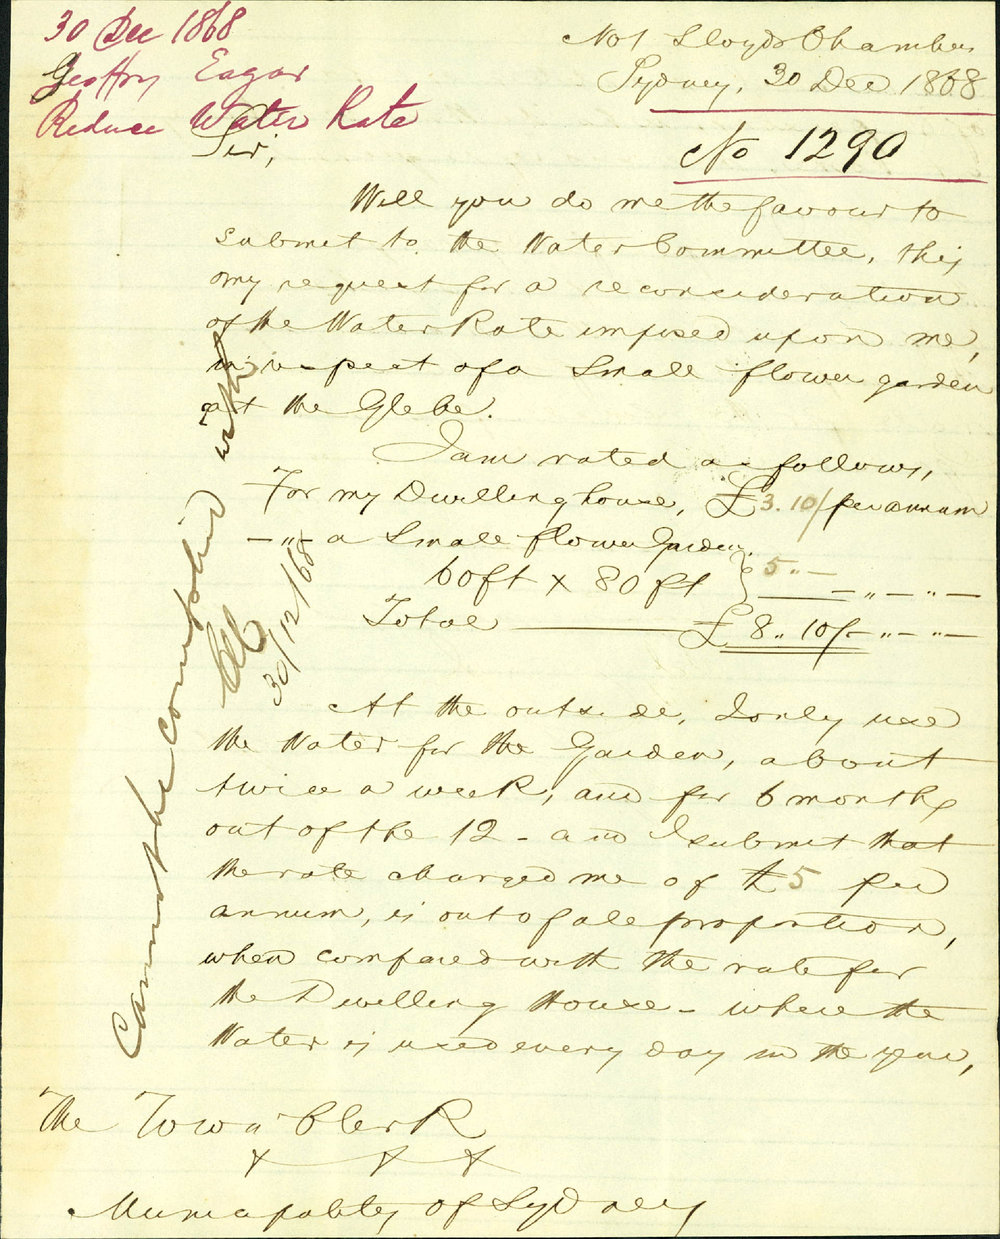 30 Dec 1868
Geoffry Eagar
Reduce Water Rate
No 1 Lloyds Chambers
Sydney, 30 Dec 1868
No 1290
Sir,
Will you do me the favour to
submit to the Water Committee, this
my request for a reconsideration
of the Water Rate imposed upon me,
in respect of a Small flower garden
at the Glebe.
I am rated as follows,
For my Dwelling house, £3.10/ per annum
— " — a Small flower Garden,
60 ft x 80 ft } 5 .. — — " — " —
Total £ 8 .. 10/- " — " —
At the outside, I only use
the Water for the Garden, about
twice a week, and for 6 months
out of the 12 - and I submit that
the rate charged me of £5 per
annum, is out of all proportion,
when compared with the rate for
the Dwelling House - where the
Water is used every day in the year,
The Town Clerk
Municipality of Sydney
Cannot be complied with
30/12/68